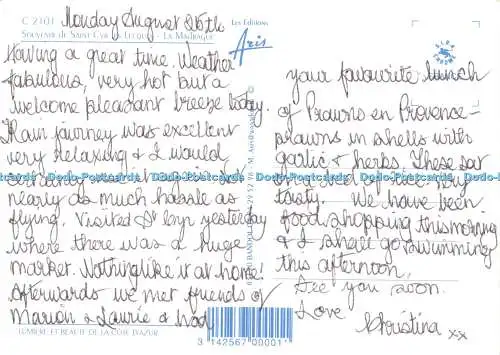 C 2101 Monday August 26th
Les Editions
Aris
SOUVENIR DE SAINT-CYR LES LECQUES - LA MADRAGUE
Having a great time. Weather
fabulous, very hot but a
welcome pleasant breeze today.
Train journey was excellent
very relaxing & I would
certainly
nearly as much hassle as
flying. Visited St Cyr yesterday
where there was a huge
market. Nothing like it at home!
Afterwards we met friends of
Marion & Laurie & had
LUMIERE ET BEAUTE DE LA COTE D'AZUR
your favourite lunch
of Prawns en Provence -
prawns in shells with
garlic & herbs. These sat
on a bed of rice. Very
tasty. We have been
food shopping this morning
& I shall go swimming
this afternoon.
See you soon.
Love
Christina xx
3 142567 00001
Dodo-Postcards Dodo-Postcards Dodo-Postcards Dodo-Postcards Dodo-Postcards